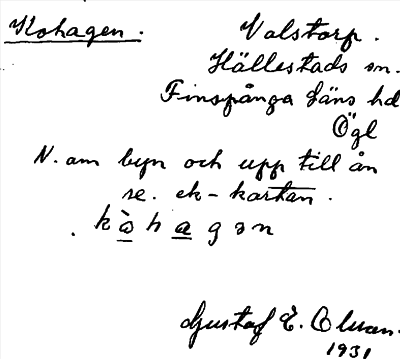 Kohagen.
Valstorp.
Hällestads sn.
Finspånga läns hd
Ögl
N. om byn och upp till ån
se. ek-kartan.
. k ò h a g ə n
Gustaf E.
1931